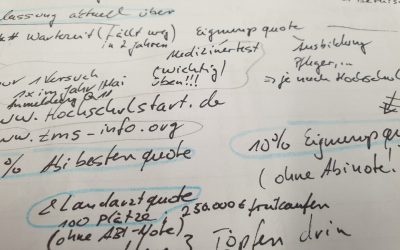 lassung aktuell über
** Wartezeit (fällt weg
in 2 Jahren
Eignungsquote
Medizinertest
(wichtig!
üben!!!
Ausbildung
Pfleger,...
=> je nach Hochschul
nur 1 Versuch
1x im Jahr Mai
Anmeldung
www.Hochschulstart.de
www.tms-info.org
% Abibestenquote
10% Eignungsqu
(ohne Abinote!
Landarztquote
100 Plätze, 250.000 € freikaufen
(ohne ABI-Note)
3 Töpfen drin